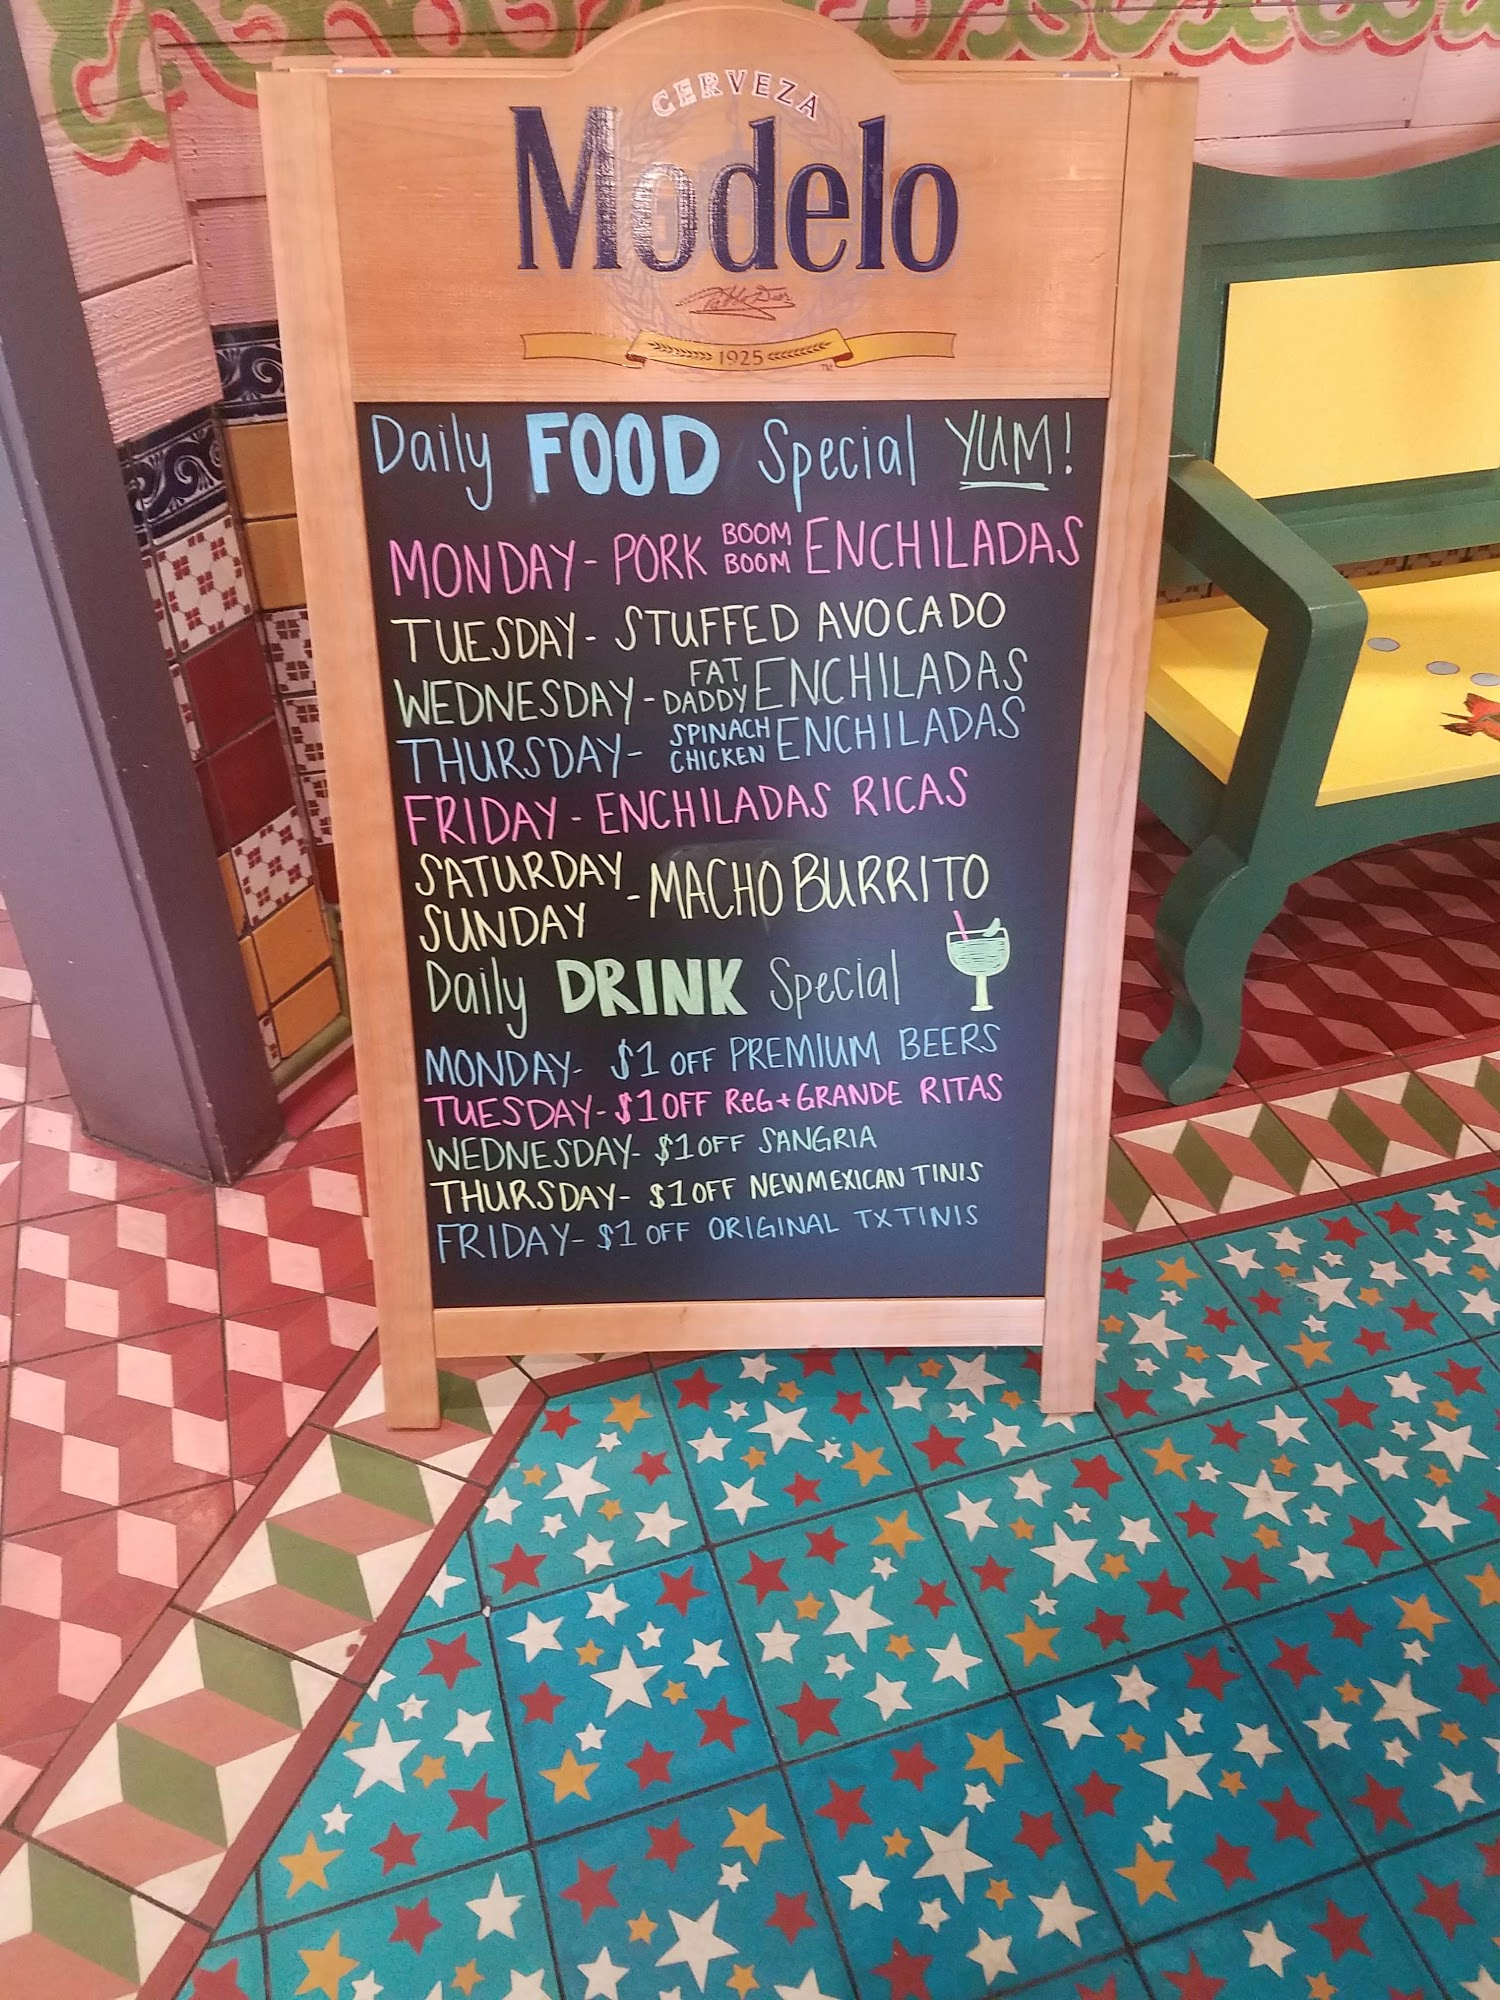 CERVEZA
Modelo
1925
Daily FOOD Special YUM!
MONDAY - PORK BOOM BOOM ENCHILADAS
TUESDAY - STUFFED AVOCADO
WEDNESDAY - FAT DADDY ENCHILADAS
THURSDAY - SPINACH CHICKEN ENCHILADAS
FRIDAY - ENCHILADAS RICAS
SATURDAY
SUNDAY - MACHO BURRITO
Daily DRINK Special
MONDAY - $1 OFF PREMIUM BEERS
TUESDAY - $1 OFF REG + GRANDE RITAS
WEDNESDAY - $1 OFF SANGRIA
THURSDAY - $1 OFF NEW MEXICAN TINIS
FRIDAY - $1 OFF ORIGINAL TX TINIS